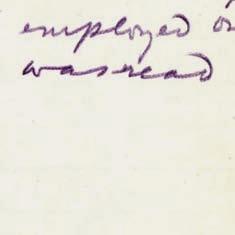 employed on
was read